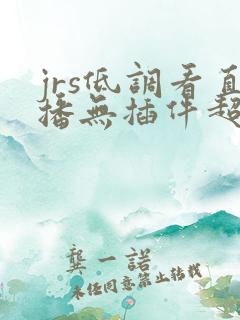 jrs低調看直
播無插件超
龔一諾
未任同意禁止转载